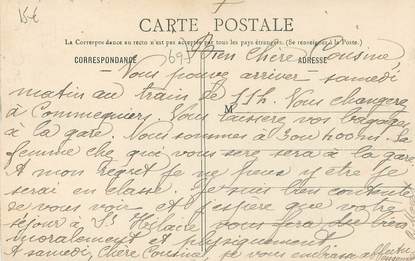 15€
CARTE POSTALE
La Correspondance au recto n'est pas acceptée par tous les pays étrangers. (Se renseigner à la Poste.)
CORRESPONDANCE
ADRESSE
M
695
Bien Chère Cousine,
Vous pouvez arriver samedi
matin au train de 11h. Vous changerez
à Commequiers. Vous laisserez vos bagages
à la gare. Nous sommes à 300 m. La
femme chez qui vous serez sera à la gare
A mon regret je ne peux y être je
serai en classe. Je suis bien contente
de vous voir et j'espère que votre
séjour à St Hilaire vous fera du bien
moralement et physiquement
A samedi, Chère Cousine, je vous embrasse